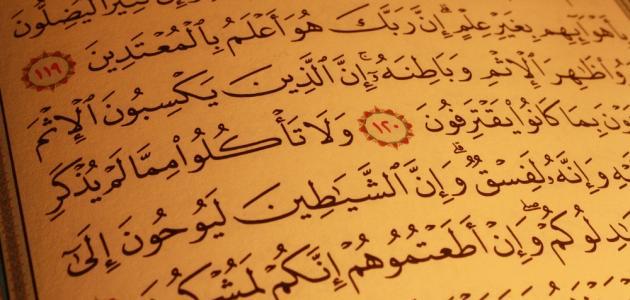 كَثِيرًا لَّيُضِلُّونَ
بِأَهْوَآئِهِم بِغَيْرِ عِلْمٍ ۗ إِنَّ رَبَّكَ هُوَ أَعْلَمُ بِٱلْمُعْتَدِينَ ١١٩
وَظَٰهِرَ ٱلْإِثْمِ وَبَاطِنَهُۥٓ ۚ إِنَّ ٱلَّذِينَ يَكْسِبُونَ ٱلْإِثْمَ
بِمَا كَانُوا۟ يَقْتَرِفُونَ ١٢٠ وَلَا تَأْكُلُوا۟ مِمَّا لَمْ يُذْكَرِ
وَإِنَّهُۥ لَفِسْقٌ ۗ وَإِنَّ ٱلشَّيَٰطِينَ لَيُوحُونَ إِلَىٰٓ
وَإِنْ أَطَعْتُمُوهُمْ إِنَّكُمْ لَمُشْرِكُونَ